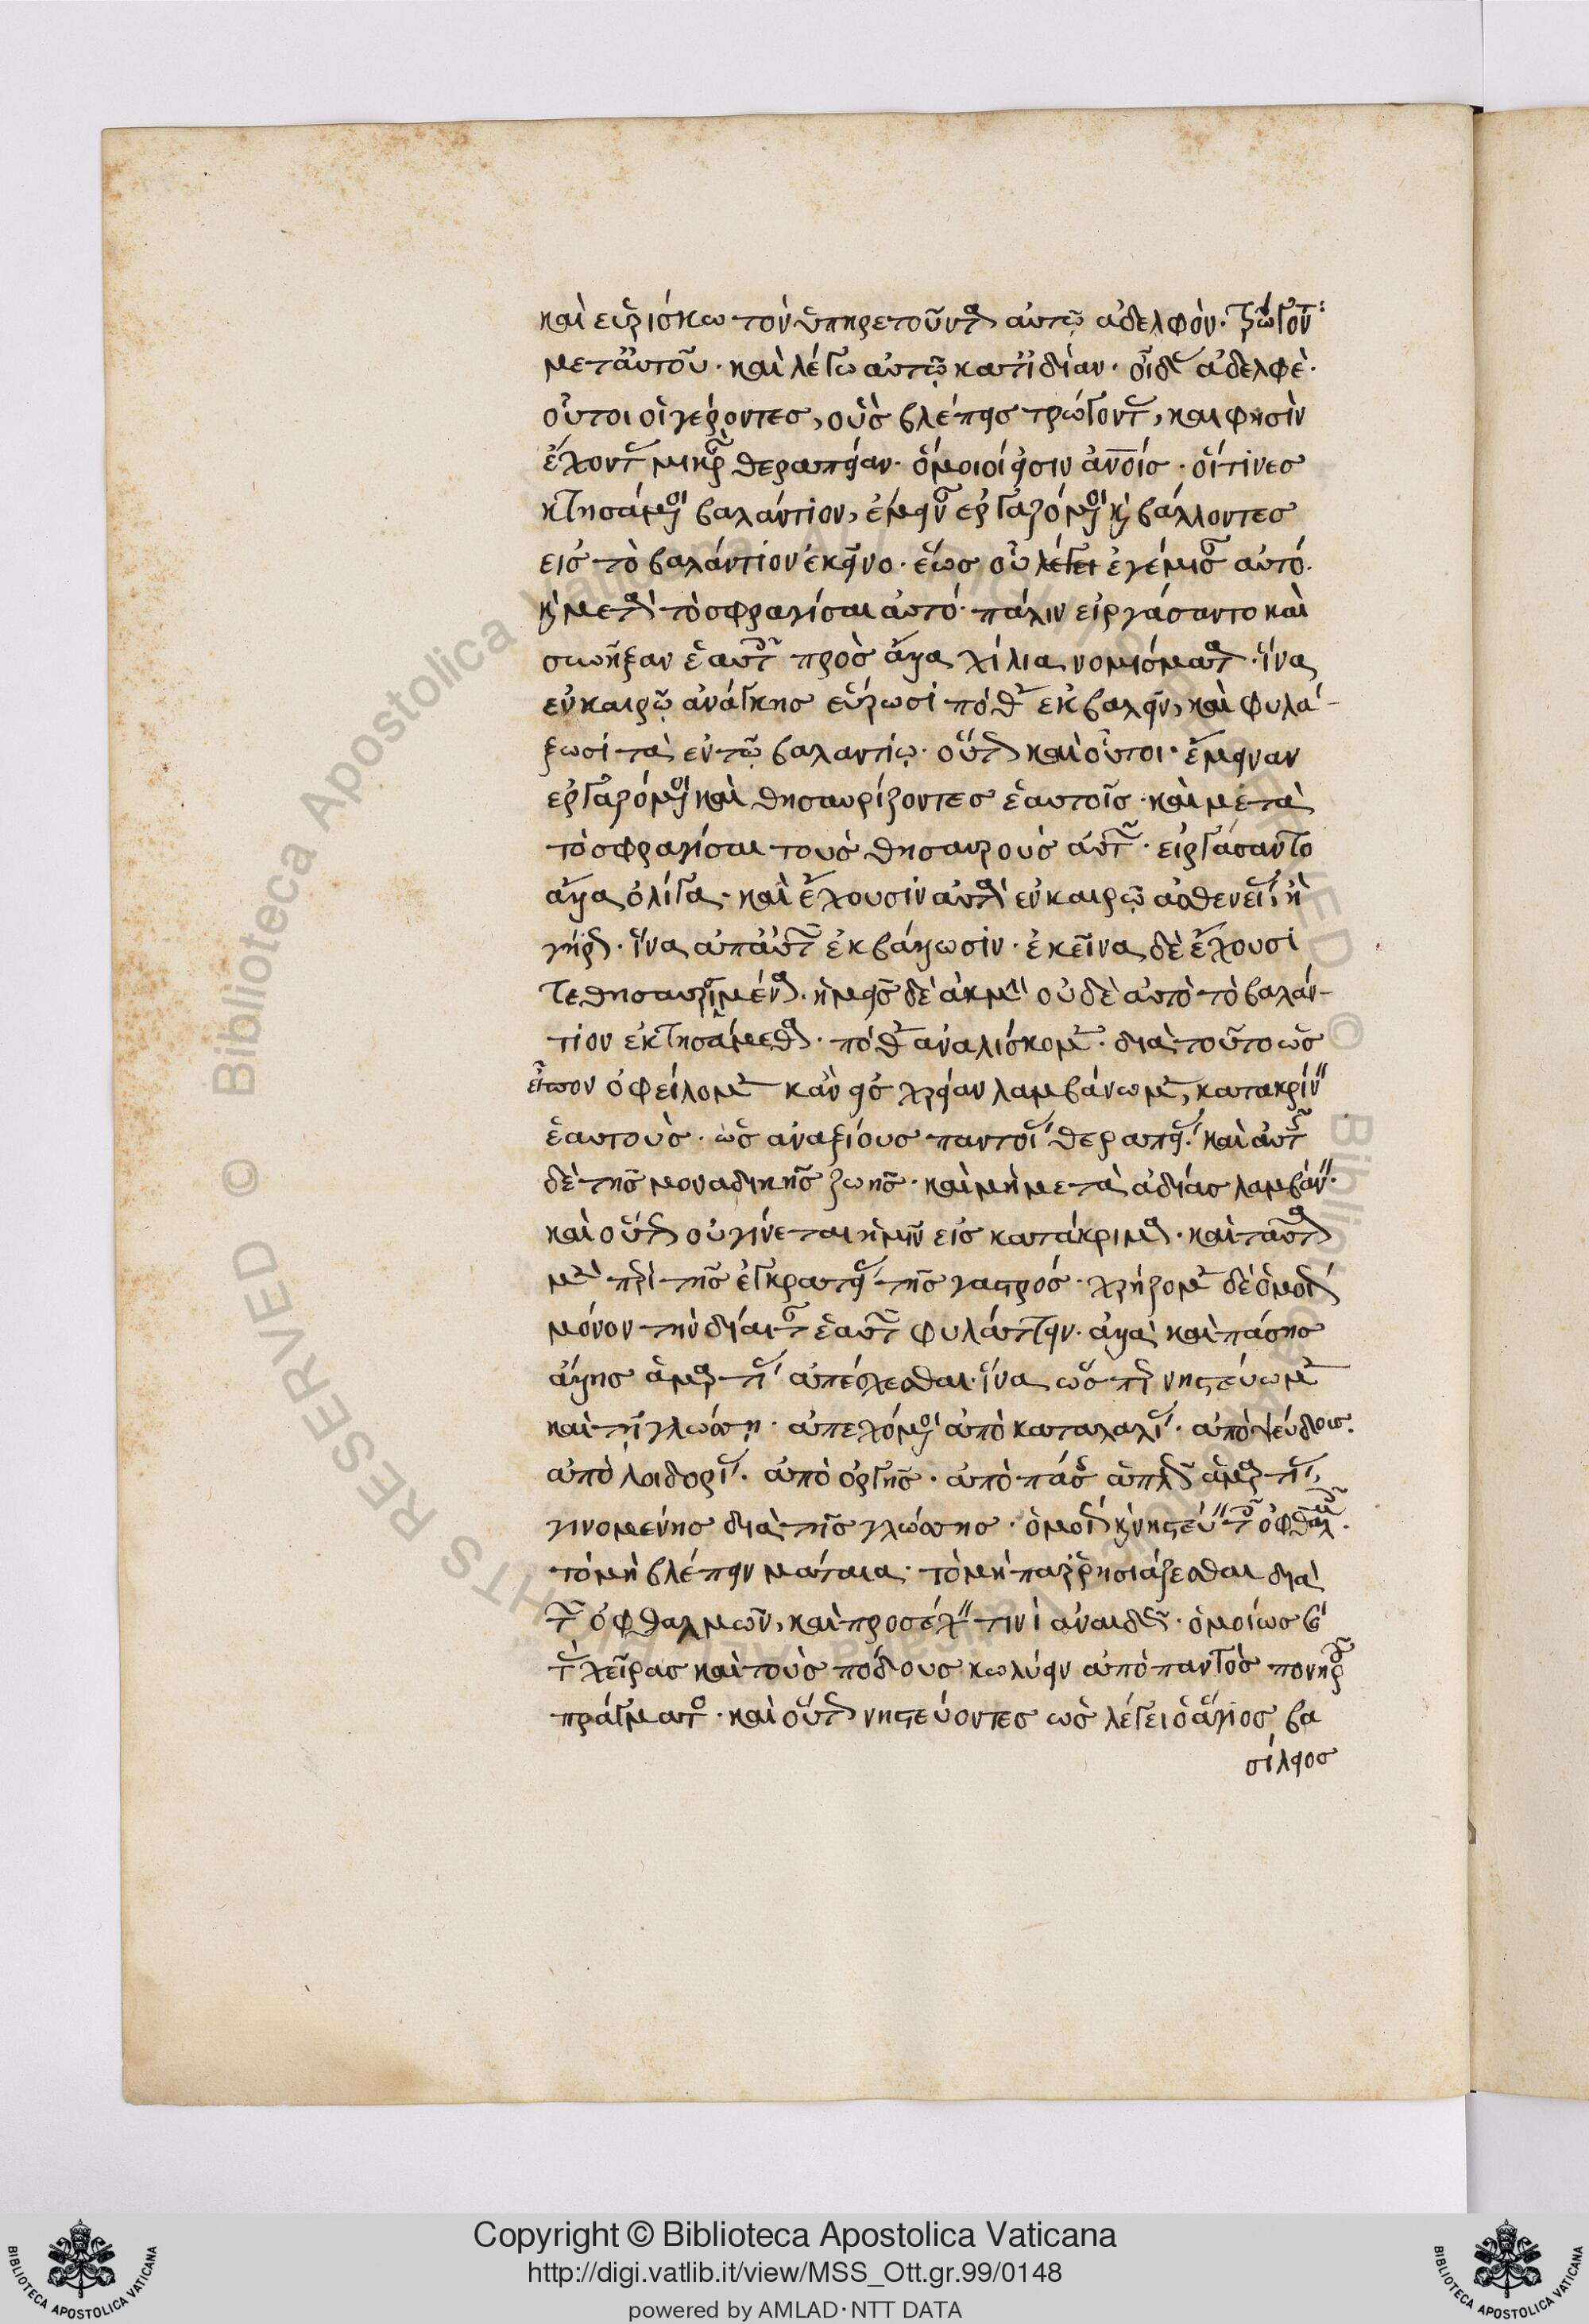 καὶ εὑρίσκω τὸν ὑπηρετοῦντα αὐτῷ ἀδελφὸν· τρώγοντα
μετ' αὐτοῦ· καὶ λέγω αὐτῷ κατ' ἰδίαν· οἶδας ἀδελφὲ·
οὗτοι οἱ γέροντες, οὓς βλέπεις τρώγοντας, καὶ φησὶν
ἔχοντας μικρὰν θεραπείαν· ὅμοιοί εἰσιν ἀνοις· οἵτινες
κτησάμενοι βαλάντιον, ἔμειναν ἐργαζόμενοι καὶ βάλλοντες
εἰς τὸ βαλάντιον ἐκεῖνο· ἕως οὗ λέγει ἐγέμισαν αὐτό·
καὶ μετὰ τὸ σφραγίσαι αὐτό· πάλιν εἰργάσαντο καὶ
συνῆξαν ἑαυτοῖς πρὸς ἄλλα χίλια νομίσματα· ἵνα
ἐν καιρῷ ἀνάγκης εὕρωσι πόθεν ἐκβαλεῖν, καὶ φυλά-
ξωσι τὰ ἐν τῷ βαλαντίῳ· οὕτω καὶ οὗτοι· ἔμειναν
ἐργαζόμενοι καὶ θησαυρίζοντες ἑαυτοῖς· καὶ μετὰ
τὸ σφραγίσαι τοὺς θησαυροὺς αὐτῶν· εἰργάσαντο
ἄλλα ὀλίγα· καὶ ἔχουσιν αὐτὰ ἐν καιρῷ ἀσθενείας ἢ
γήρως· ἵνα ἀπ' αὐτῶν ἐκβάλλωσιν· ἐκεῖνα δὲ ἔχουσι
τεθησαυρισμένα· ἡμεῖς δὲ ἀκμὴν οὐδὲ αὐτὸ τὸ βαλάν-
τιον ἐκτησάμεθα· πόθεν ἀναλίσκομεν· διὰ τοῦτο ὡς
εἶπον ὀφείλομεν κἂν εἰς χρείαν λαμβάνωμεν, κατακρίνειν
ἑαυτοὺς· ὡς ἀναξίους παντοίας θεραπείας· καὶ αὐτῆς
δὲ τῆς μοναδικῆς ζωῆς· καὶ μὴ μετὰ ἀδείας λαμβάνειν·
καὶ οὕτω οὐ γίνεται ἡμῖν εἰς κατάκριμα· καὶ ταῦτα
μὲν περὶ τῆς ἐγκρατείας τῆς γαστρός· χρήζομεν δὲ οὐ
μόνον τὴν δίαιταν ἑαυτῶν φυλάττειν· ἀλλὰ καὶ πάσης
ἄλλης ἁμαρτίας ἀπέσχεσθαι· ἵνα ὥσπερ νηστεύωμεν
καὶ τῇ γλώσσῃ· ἀπεχόμενοι ἀπὸ καταλαλιᾶς· ἀπὸ ψεύδους·
ἀπὸ λοιδορίας· ἀπὸ ὀργῆς· ἀπὸ πάσης ἁπλῶς ἁμαρτίας
γινομένης διὰ τῆς γλώσσης· ὁμοίως καὶ νηστεύειν τοῖς ὀφθαλμοῖς·
τὸ μὴ βλέπειν μάταια· τὸ μὴ παρρησιάζεσθαι διὰ
τῶν ὀφθαλμῶν, καὶ προσέχειν τινὶ ἀναιδῶς· ὁμοίως καὶ
τὰς χεῖρας καὶ τοὺς πόδους κωλύειν ἀπὸ παντὸς πονηροῦ
πράγματος· καὶ οὕτω νηστεύοντες ὡς λέγει ὁ ἅγιος βα
σίλειος
Copyright © Biblioteca Apostolica Vaticana
http://digi.vatlib.it/view/MSS_Ott.gr.99/0148
powered by AMLAD·NTT DATA